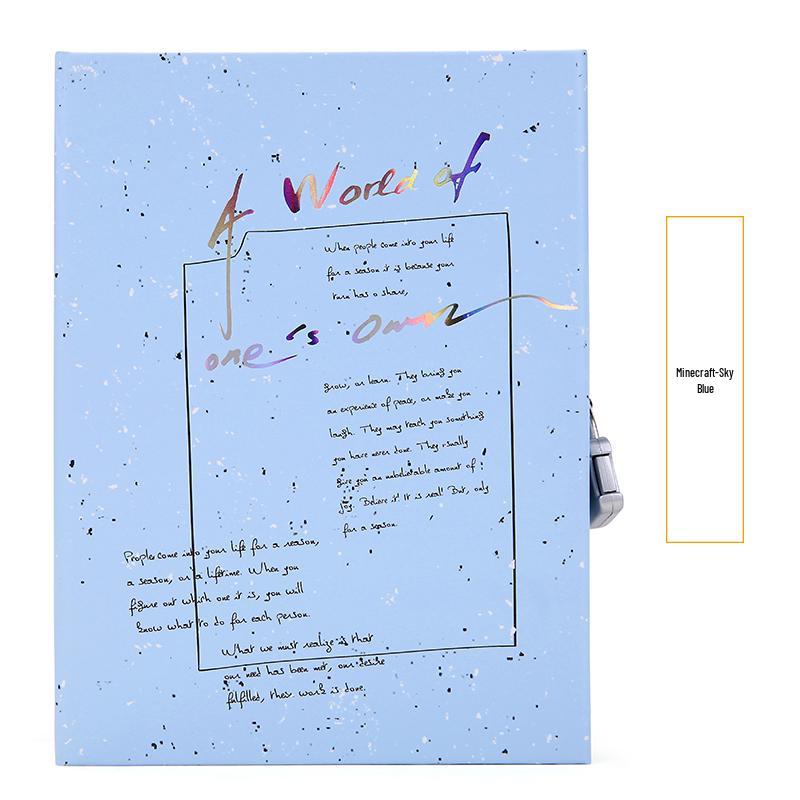 A World of
one's own
When people come into your life
for a season it is because your
turn has a share,
grow, or learn. They bring you
an experience of peace, or make you
laugh. They may teach you something
you have never done. They usually
give you an unbelievable amount of
joy. Believe it! It is real! But, only
for a season.
People come into your life for a reason,
a season, or a lifetime. When you
figure out which one it is, you will
know what to do for each person.
What we must realize is that
our need has been met, our desire
fulfilled, their work is done.
Minecraft-Sky
Blue